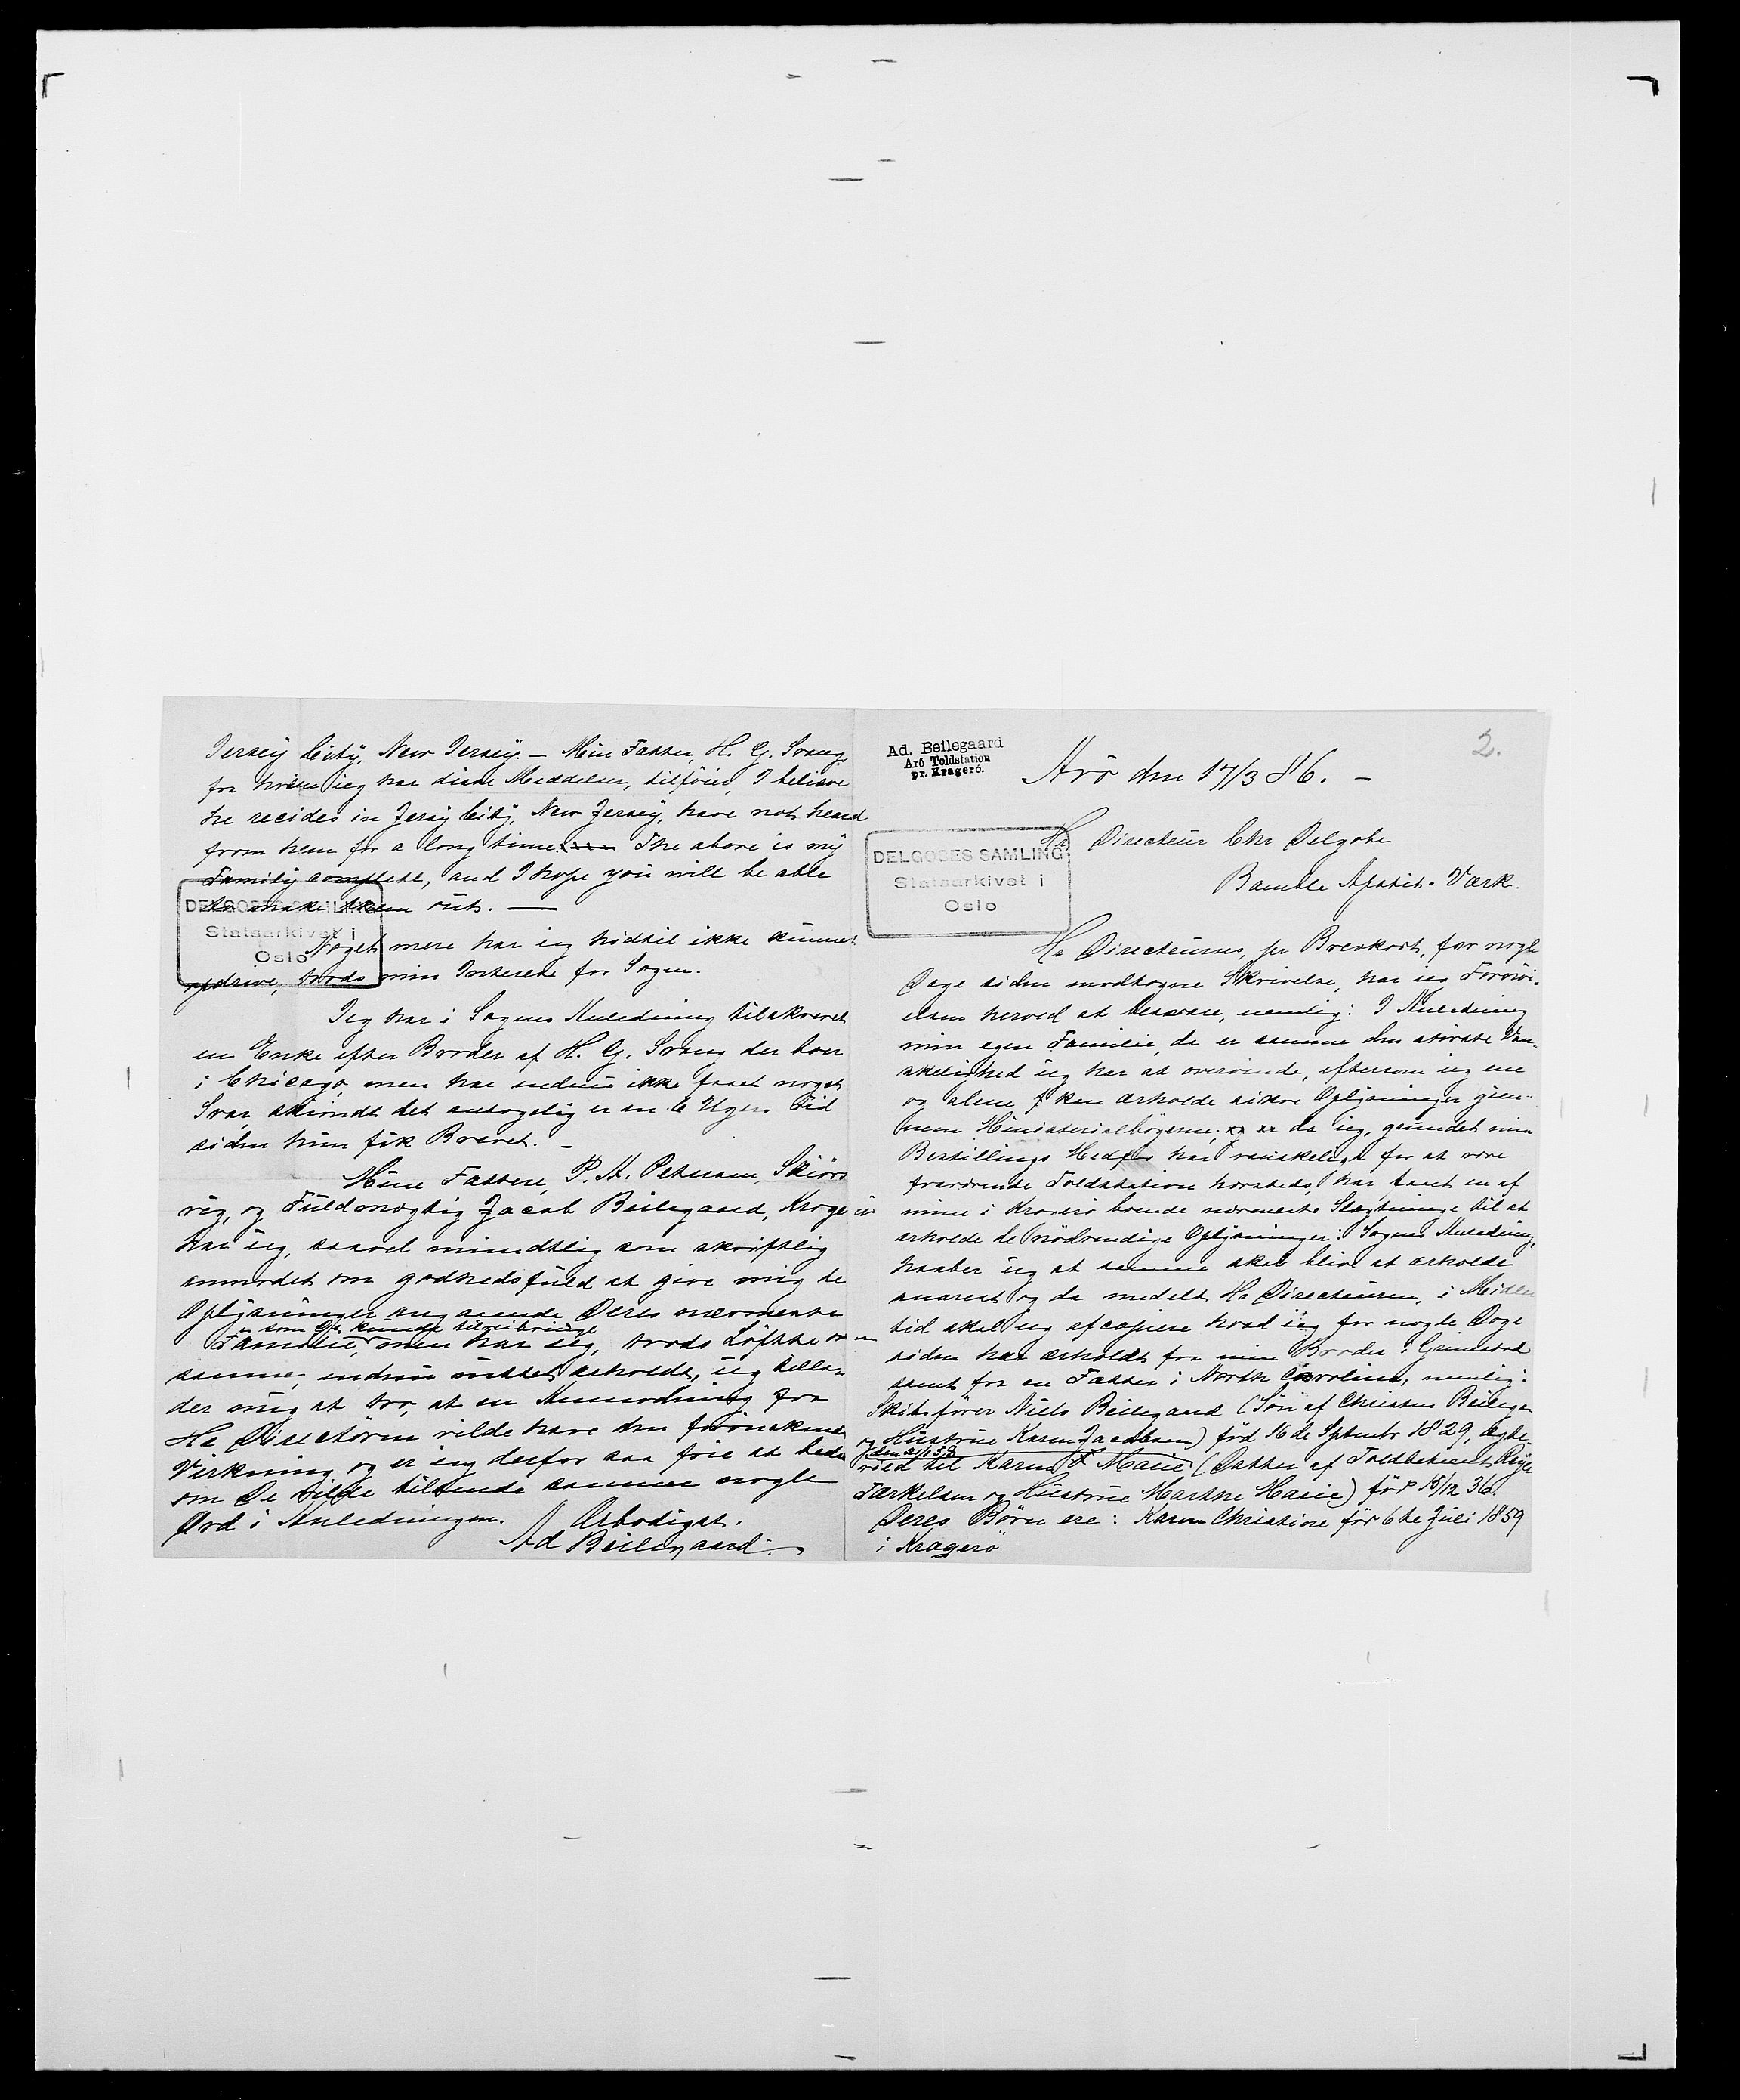 Jersey City, New Jersey. – Min Fætter, H. G. Svang,
fra hvem jeg har disse Meddelser, tilföier, I believe
he recides in Jersy City, New Jersey, have not heard
from hem for a long time. The above is my
Family complete, and I hope you will be able
to make them out. —
DELGOBES SAMLING
Statsarkivet i
Oslo
Noget mere har jeg hidtil ikke kunnet
opdrive, trods min Interesse for Sagen.
Jeg har i Sagens Anledning tilskrevet
en Enke efter Broder af H. G. Svang der boer
i Chicago, men har endnu ikke faaet noget
Svar, skiöndt det antagelig er en 6 Ugers Tid
siden hun fik Brevet. –
Mine Fættere, P. A. Petersen, Skiörs
vig, og Fuldmægtig Jacob Beilegaard, Kragerö
har jeg, saavel mundtlig som skriftlig
anmodet om godhedsfuld at give mig de
Oplysninger angaaende Deres nærmeste
som de kunde tilveibringe
Familie, men har jeg, trods Löfte om
samme, endnu intet erholdt, jeg tilla-
der mig at tro, at en Anmodning fra
Hr Directören vilde have den forönskede
Virkning og er jeg derfor saa frie at bede
om De vilde tilsende samme nogle
Ord i Anledningen. Ærbödigst.
Ad Beilegaard.
2.
Ad. Beilegaard
Arö Toldstation
pr. Kragerö.
Arö den 17/3 86. –
Hr Directeur Chr Delgobe
Bamble Apatit-Værk.
DELGOBES SAMLING
Statsarkivet i
Oslo
Hr Directeurens, pr Brevkort, for nogle
Dage siden modtagne Skrivelse, har jeg Fornöi-
elsen herved at besvare, nemlig: I Anledning
min egen Familie, da er samme den störste Van-
skelighed jeg har at overvinde, eftersom jeg ene
og alene kan erholde sikre Oplysninger gien-
nem Ministerialbögerne, da jeg, grundet min
Bestillings Medför har vanskeligt for at være
fraværende Toldstation horsteds, har taget en af
mine i Kragerö boende nærmeste Slægtninge til at
erholde de nödvendige Oplysninger i Sagens Anledning,
haaber jeg at samme skal blive at erholde
snarest og da meddelt Hr Directeuren, i Midler
tid skal jeg afcopiere hvad jeg for nogle Dage
siden har erholdt fra min Broder i Grimstad
samt fra en Fætter i North Carolina, nemlig:
Skibsförer Niels Beilegaard (Sön af Christen Beilegaa
og Hustrue Karen Jacobsen) född 16de Septembr 1829, ægte
den 21/1 58
vied til Karen F Marie (Datter af Toldbetjent Röyer
Tærkelsen og Hustrue Marthe Marie) född 15/12 36.
Deres Börn ere: Karen Christine född 6te Juli 1859
i Kragerö